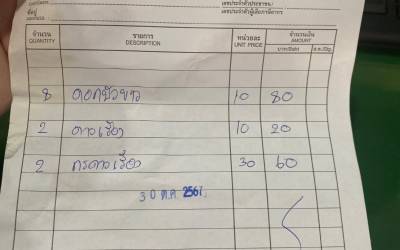 ที่อยู่
เลขประจำตัวประชาชน/
เลขประจำตัวผู้เสียภาษีอากร
จำนวน รายการ หน่วยละ จำนวนเงิน
QUANTITY DESCRIPTION UNIT PRICE AMOUNT
บาท/Baht ส.ต./Stg.
8 ดอกบัวขาว 10 80
2 ดาวเรือง 10 20
2 30 60
30 ต.ค. 2567